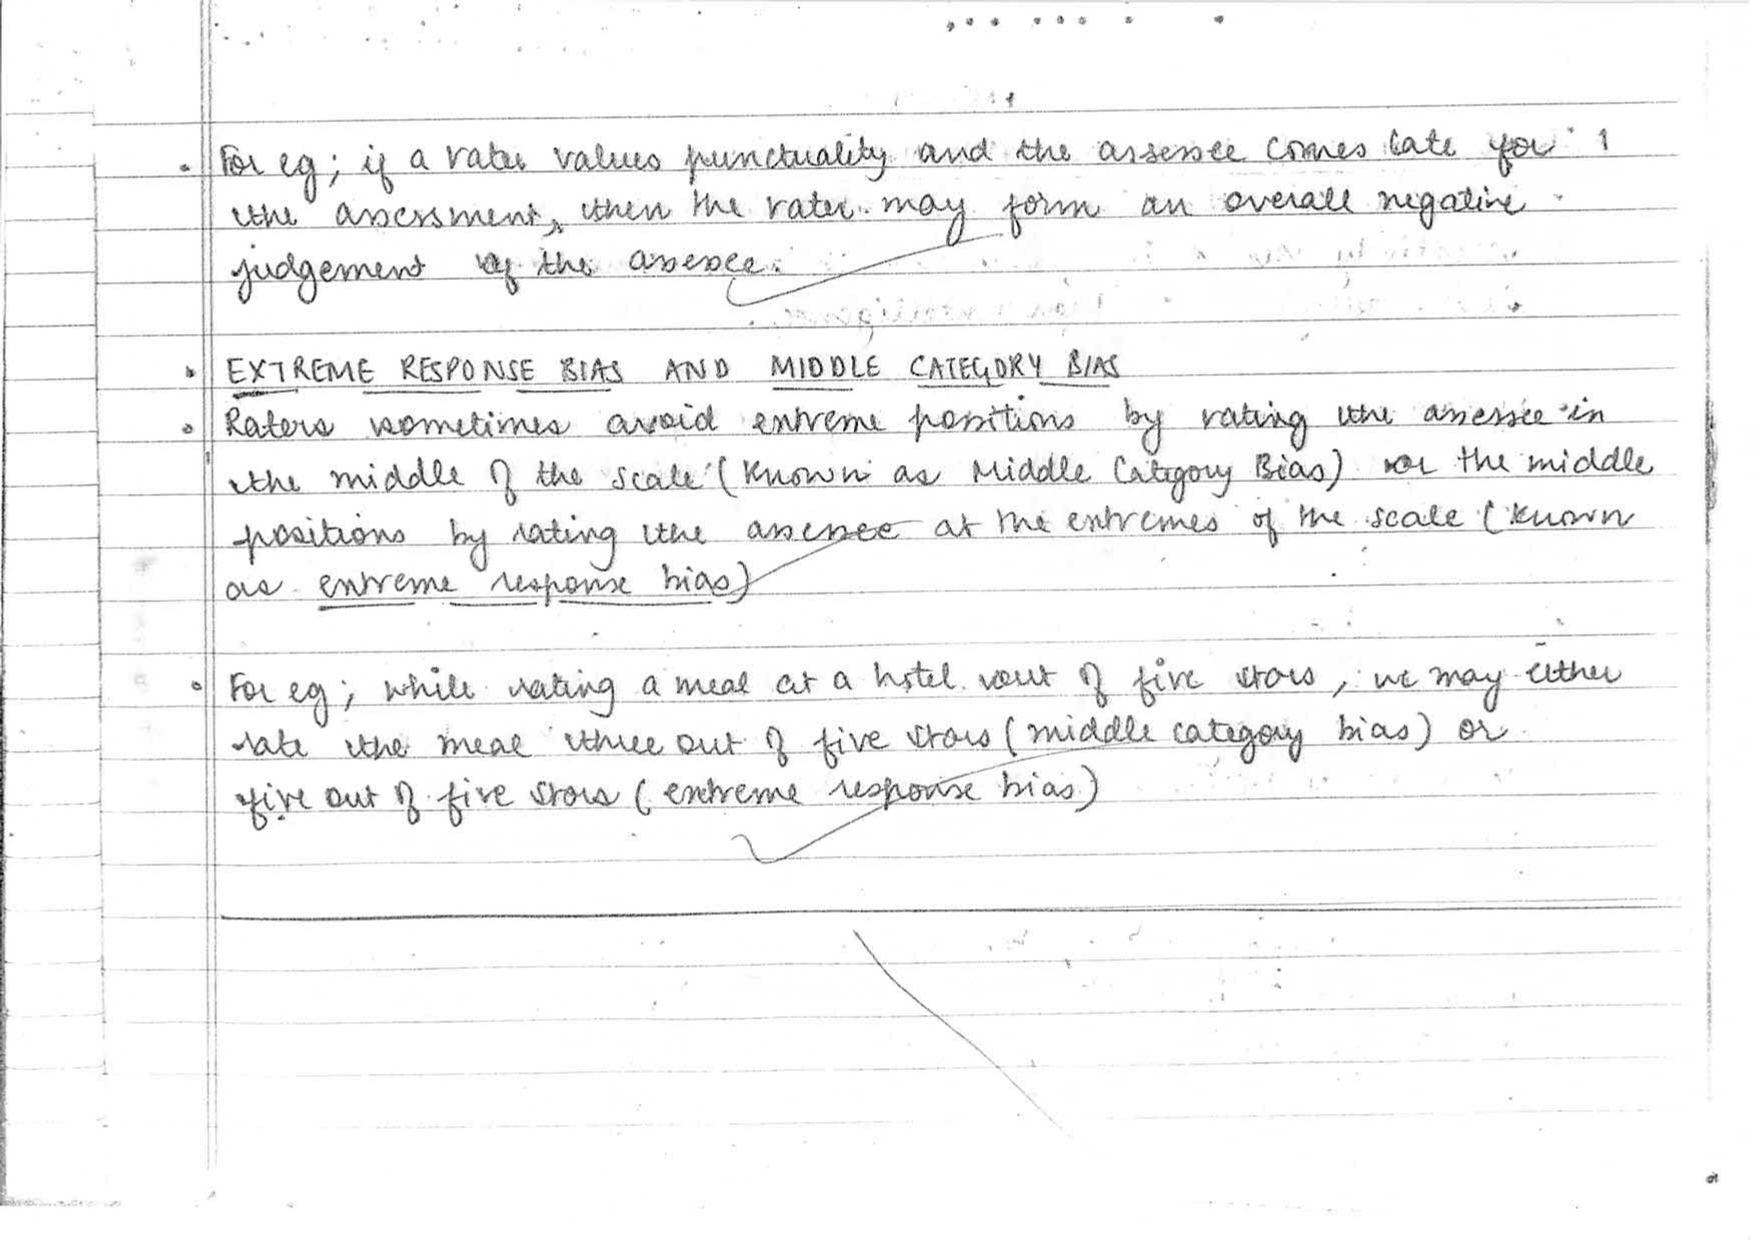 • For eg; if a rater values punctuality and the assessee comes late for
the assessment, then the rater may form an overall negative
judgement of the assessee.
• EXTREME RESPONSE BIAS AND MIDDLE CATEGORY BIAS
• Raters sometimes avoid extreme positions by rating the assessee in
the middle of the scale (known as Middle Category Bias) or the middle
positions by rating the assessee at the extremes of the scale (known
as extreme response bias)
• For eg; while rating a meal at a hotel out of five stars, we may either
rate the meal three out of five stars (middle category bias) or
five out of five stars (extreme response bias)